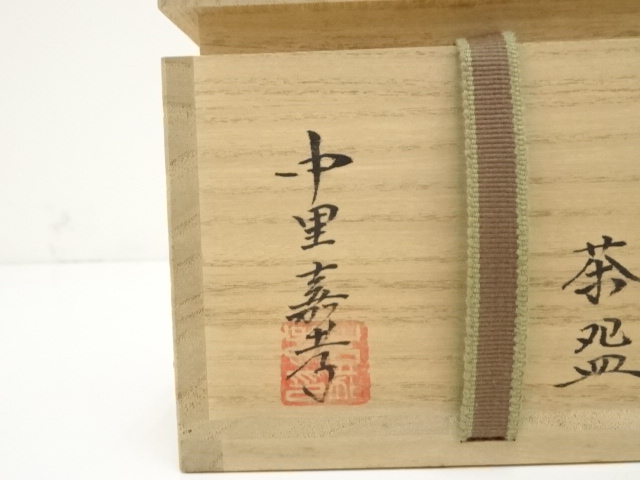 茶盌
中里嘉孝